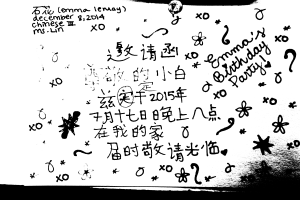 (emma lemay)
december 8, 2014
chinese III
ms. Lin
Emma's
Birthday
Party!
邀请函
敬的小白
兹定于2015年
7月十七日晚上八点
在我的家
届时敬请光临
xo
xo
xo
xo
xo
xo
xo
xo